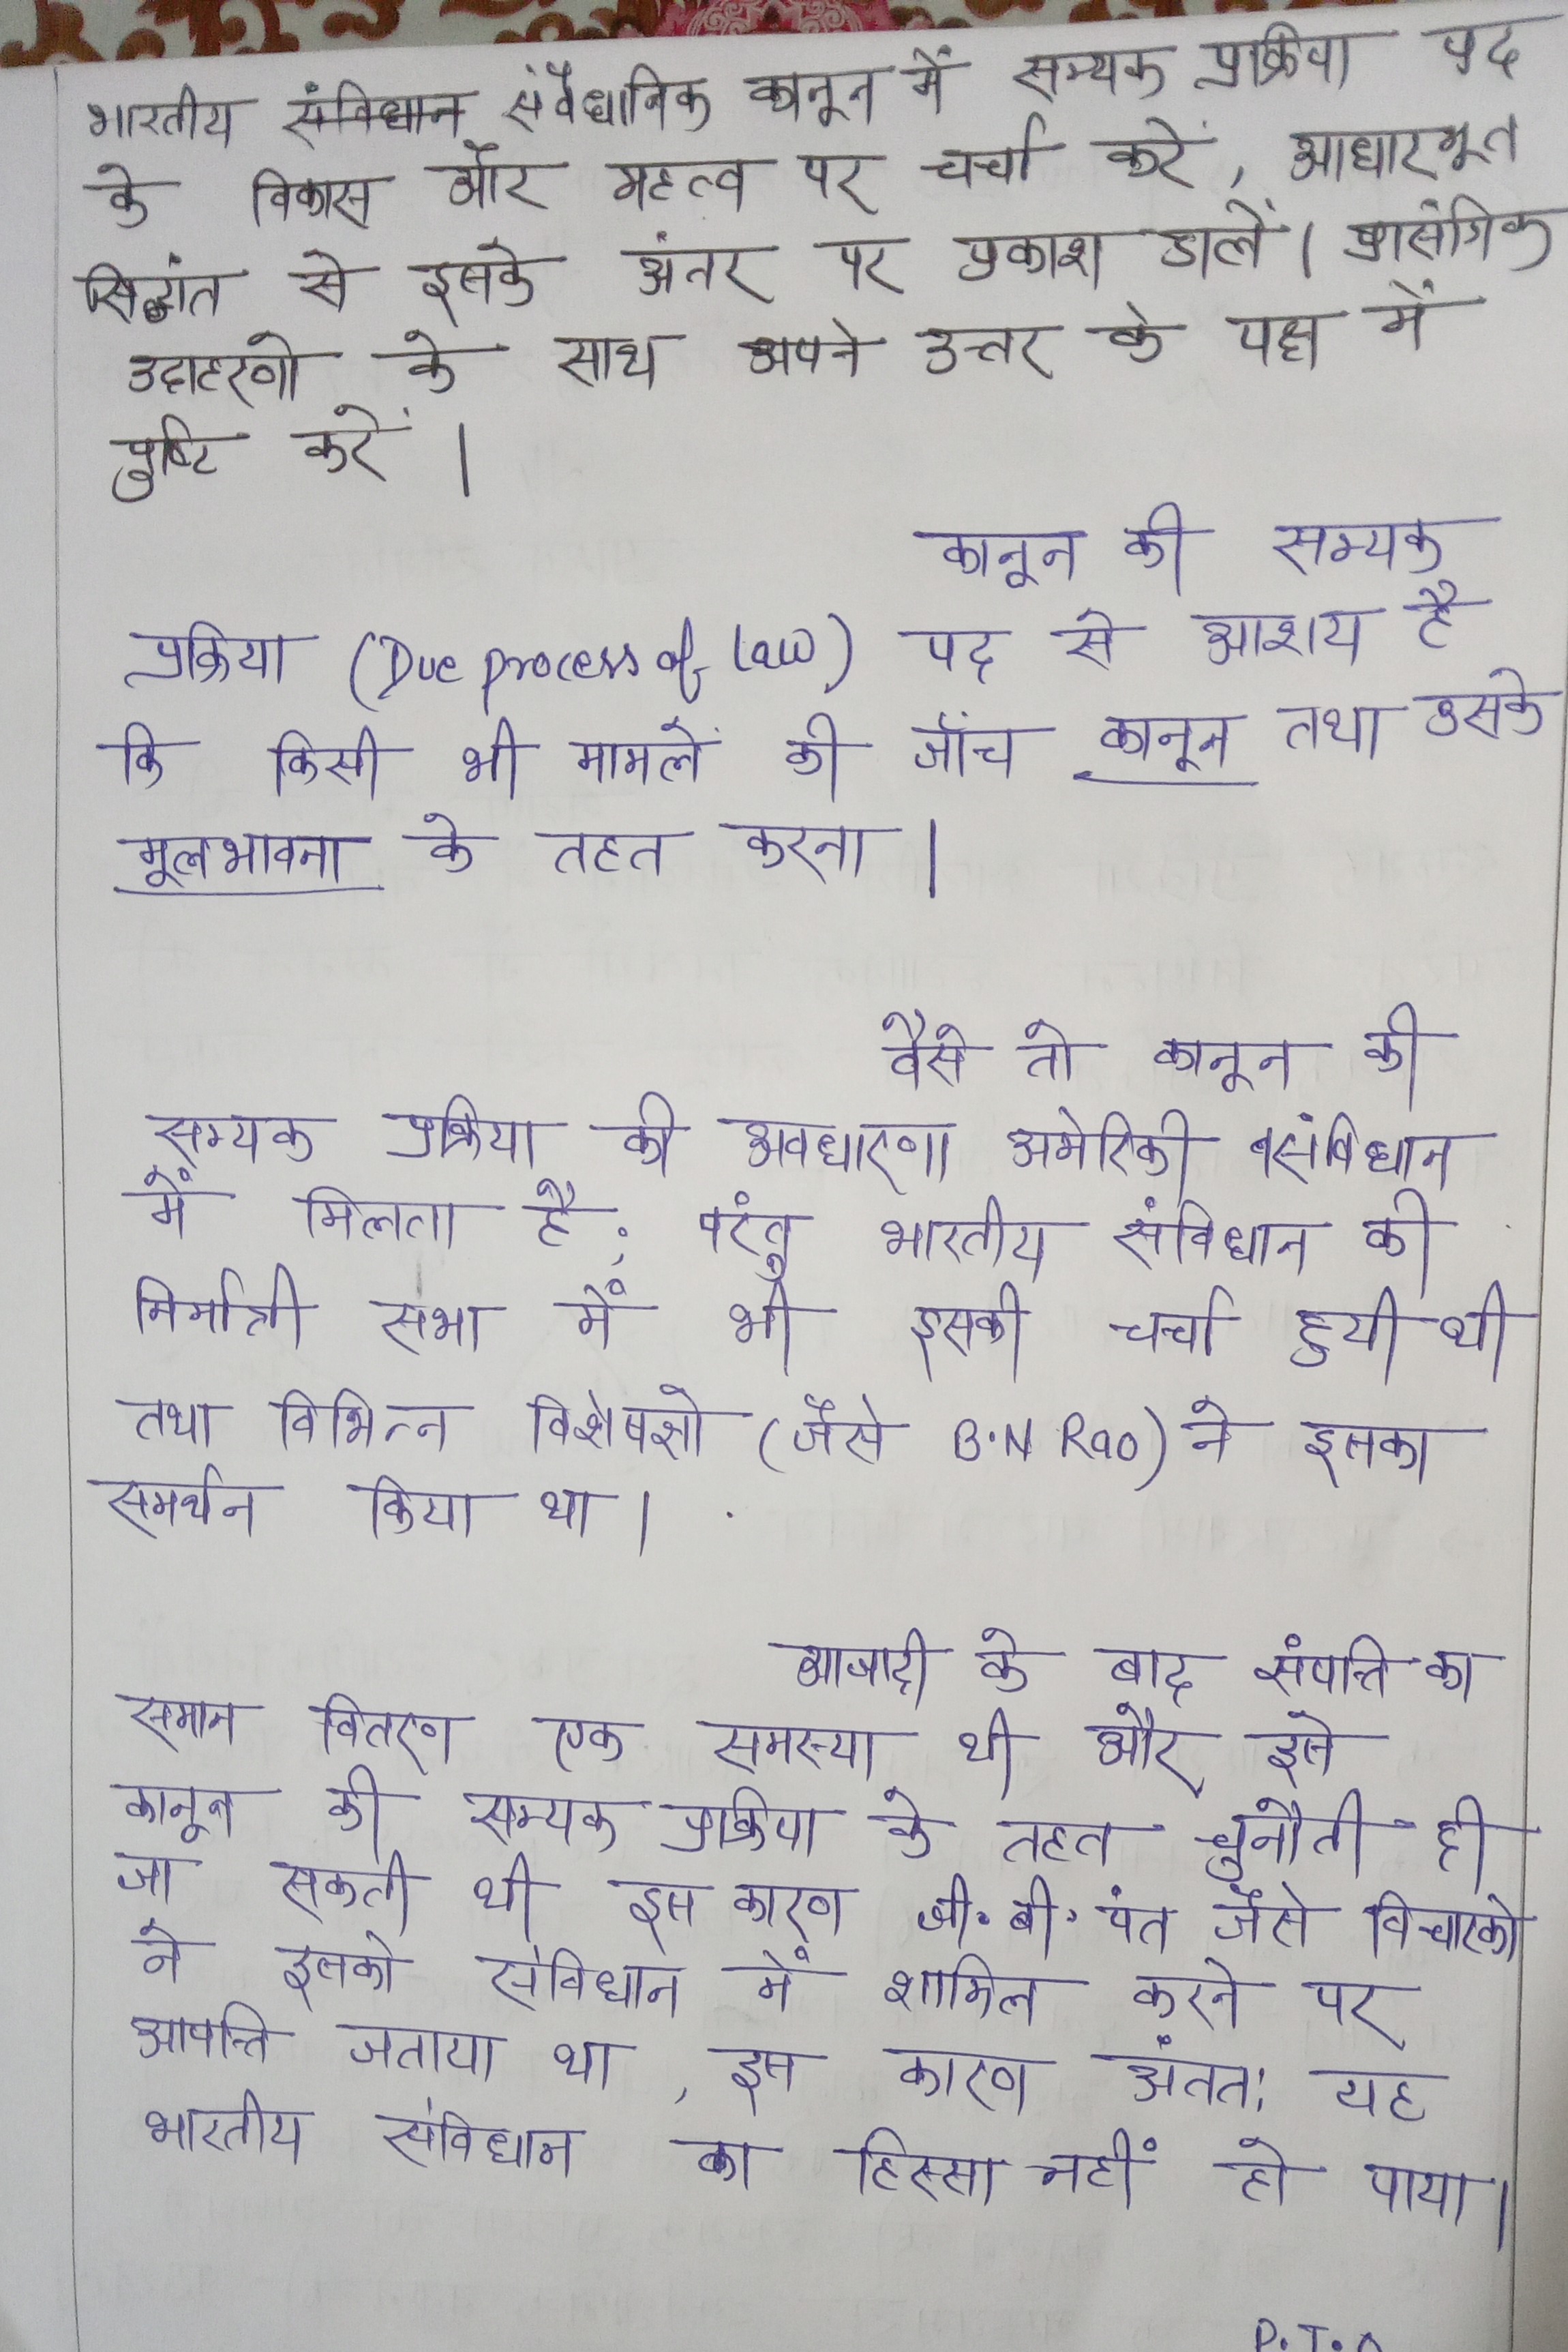 भारतीय संविधान संवैधानिक कानून में सम्यक प्रक्रिया पद
के विकास और महत्व पर चर्चा करें, आधारभूत
सिद्धांत से इसके अंतर पर प्रकाश डालें। प्रासंगिक
उदाहरणो के साथ अपने उत्तर के पक्ष में
पुष्टि करें ।
कानून की सम्यक
प्रक्रिया (Due process of law) पद से आशय है
कि किसी भी मामलें की जाँच कानून तथा उसके
मूलभावना के तहत करना ।
वैसे तो कानून की
सम्यक प्रक्रिया की अवधारणा अमेरिकी संविधान
में मिलता है; परंतु भारतीय संविधान की
निर्मात्री सभा में भी इसकी चर्चा हुयी थी
तथा विभिन्न विशेषज्ञो (जैसे B.N Rao) ने इसका
समर्थन किया था ।
आजादी के बाद संपत्ति का
समान वितरण एक समस्या थी और इसे
कानून की सम्यक प्रक्रिया के तहत चुनौती दी
जा सकती थी इस कारण जी. बी. पंत जैसे विचारको
ने इसको संविधान में शामिल करने पर
आपत्ति जताया था , इस कारण अंततः यह
भारतीय संविधान का हिस्सा नहीं हो पाया ।
P.T.O